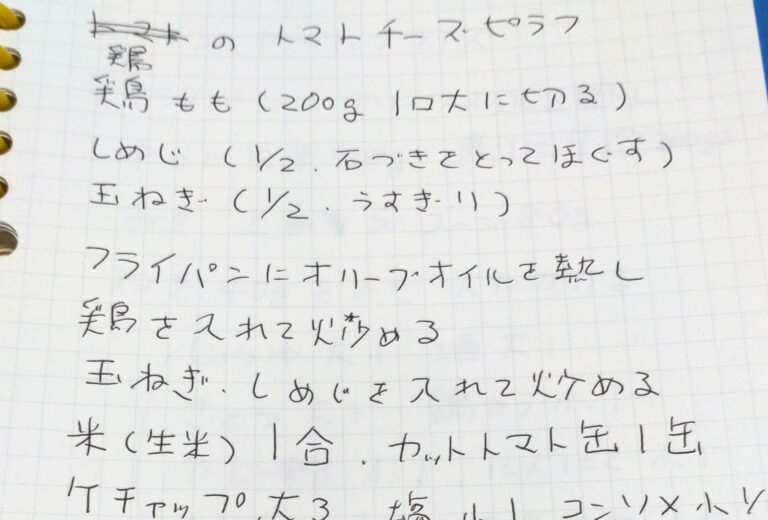 トマト の トマトチーズピラフ
鶏
鶏もも (200g 1口大に切る)
しめじ (1/2. 石づきをとってほぐす)
玉ねぎ (1/2. うすぎり)
フライパンにオリーブオイルを熱し
鶏を入れて炒める
玉ねぎ. しめじを入れて炒める
米(生米) 1合. カットトマト缶1缶
ケチャップ. 大3 塩 小1 コンソメ小1/